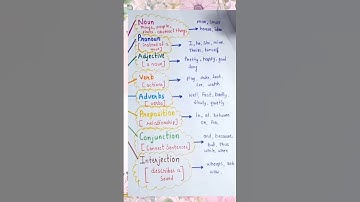 Noun
things, people,
places, abstract things
house, idea
Pronoun
[instead of a
noun]
I, he, she, mine,
theirs, herself
Adjective
[a noun]
Pretty, happy, good
long
Verb
[actions]
Play, make, feel,
are, watch
Adverbs
[verbs]
well, fast, badly,
slowly, quietly
Preposition
[relationship]
in, at, between
on, for,
Conjunction
[Connect Sentences]
and, because,
but, thus
while, when
Interjection
[describes a
Sound]
whoops,
wow,